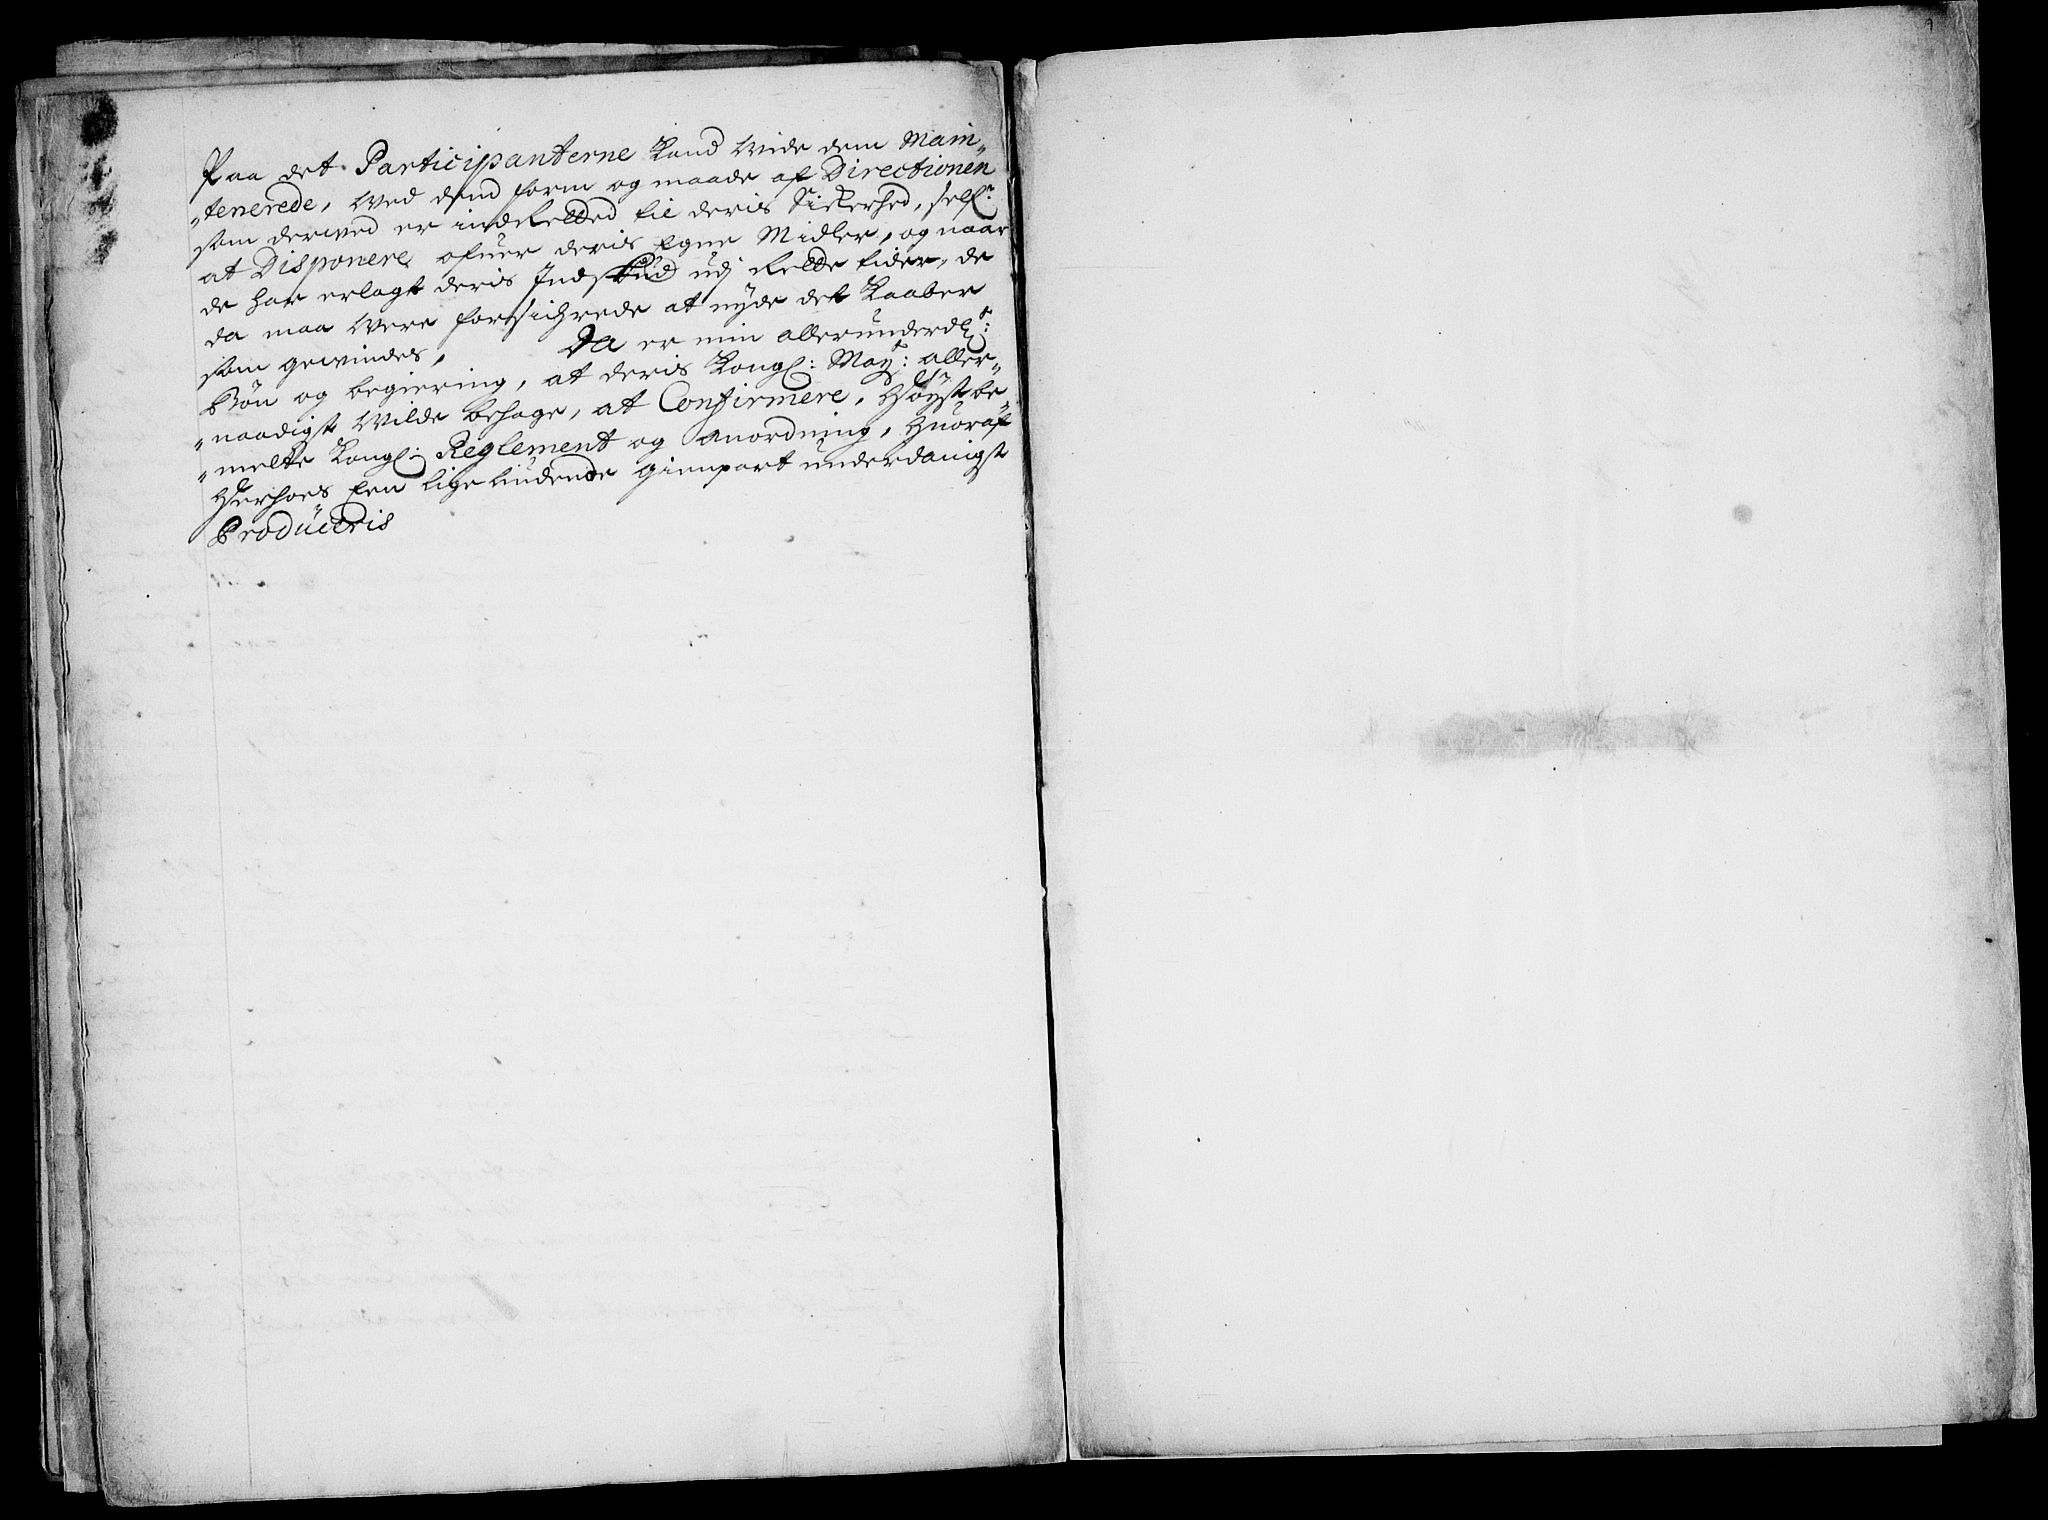 Paa det Participanterne Kand Wide dem Main„
„tenerede, Wed dend form og maade af Directionen
som derved er indstelled til deris Sickerhed, self:
at Disponere ofuer deris Egne Midler, og naar
de har erlagt deris Indskud udj stelde tider, de
da maa Were forsichrede at nyde det Kaaber
som gewindes, Da er min allerunderd:
Bön og begiering, at deris Kongl: Mayt: aller„
„naadigst Wilde behage, at Confirmere, Höystbe„
„melte Kongl: Reglement og Anordning, Huoraf
Herhoes Een ligelüdende gienpart underdanigst
Producéris